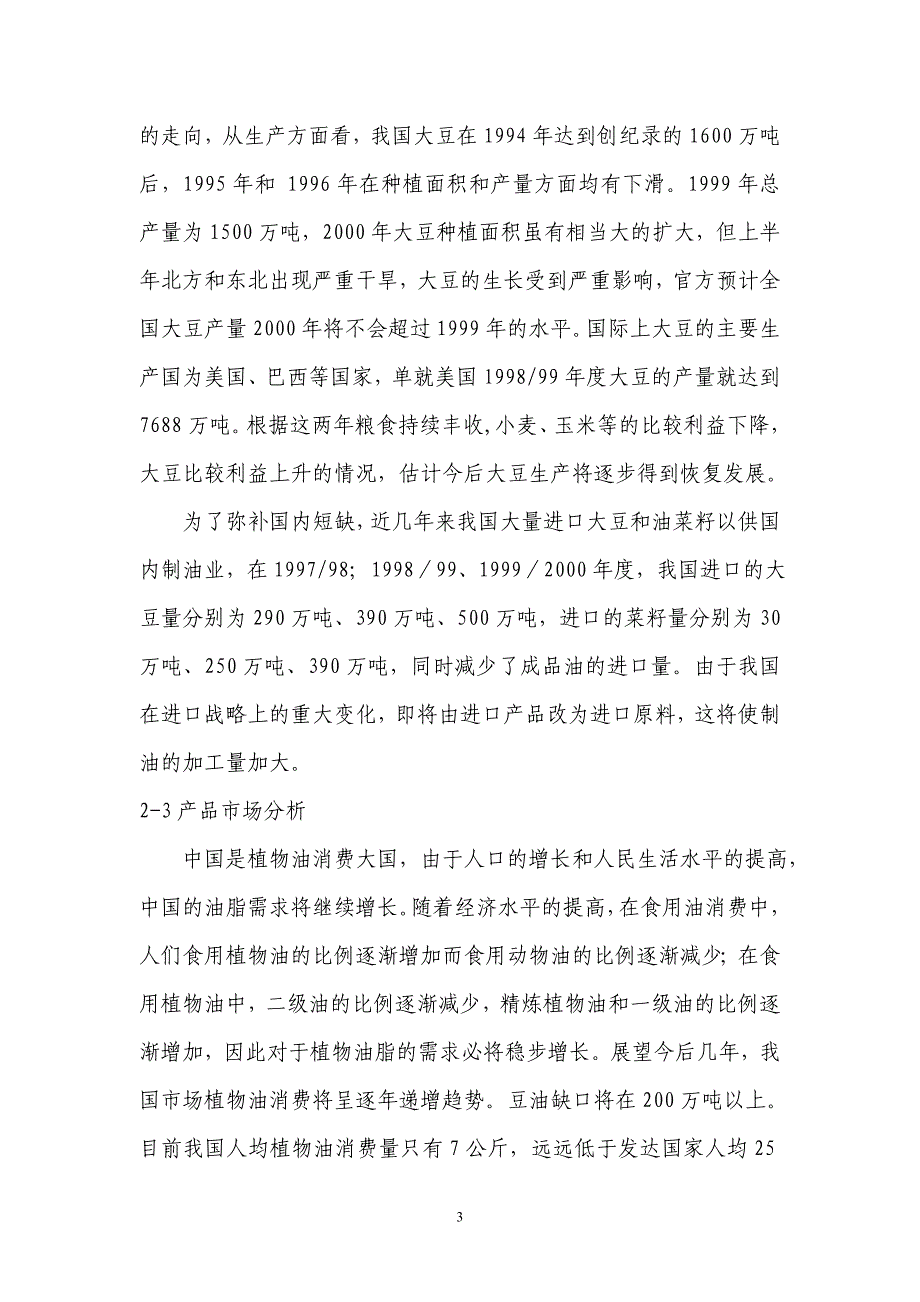 的走向，从生产方面看，我国大豆在 1994 年达到创纪录的 1600 万吨
后，1995 年和 1996 年在种植面积和产量方面均有下滑。1999 年总
产量为 1500 万吨，2000 年大豆种植面积虽有相当大的扩大，但上半
年北方和东北出现严重干旱，大豆的生长受到严重影响，官方预计全
国大豆产量 2000 年将不会超过 1999 年的水平。国际上大豆的主要生
产国为美国、巴西等国家，单就美国 1998/99 年度大豆的产量就达到
7688 万吨。根据这两年粮食持续丰收,小麦、玉米等的比较利益下降，
大豆比较利益上升的情况，估计今后大豆生产将逐步得到恢复发展。
为了弥补国内短缺，近几年来我国大量进口大豆和油菜籽以供国
内制油业，在 1997/98；1998／99、1999／2000 年度，我国进口的大
豆量分别为 290 万吨、390 万吨、500 万吨，进口的菜籽量分别为 30
万吨、250 万吨、390 万吨，同时减少了成品油的进口量。由于我国
在进口战略上的重大变化，即将由进口产品改为进口原料，这将使制
油的加工量加大。
2-3 产品市场分析
中国是植物油消费大国，由于人口的增长和人民生活水平的提高，
中国的油脂需求将继续增长。随着经济水平的提高，在食用油消费中，
人们食用植物油的比例逐渐增加而食用动物油的比例逐渐减少；在食
用植物油中，二级油的比例逐渐减少，精炼植物油和一级油的比例逐
渐增加，因此对于植物油脂的需求必将稳步增长。展望今后几年，我
国市场植物油消费将呈逐年递增趋势。豆油缺口将在 200 万吨以上。
目前我国人均植物油消费量只有 7 公斤，远远低于发达国家人均 25
3